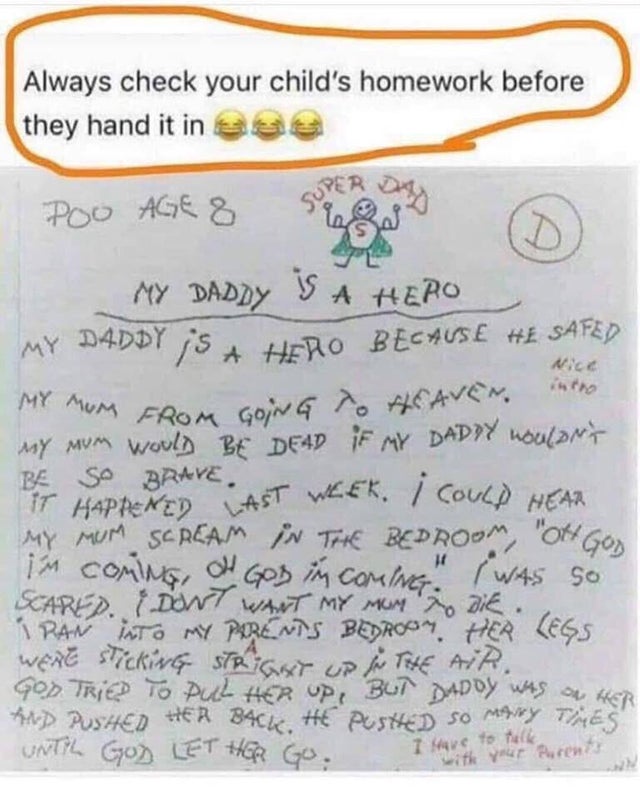 Always check your child's homework before
they hand it in 😂😂😂
SUPER DAD
POO AGE 8
S
D
MY DADDY iS A HERO
MY DADDY iS A HERO BECAUSE HE SAFED
Nice
intro
MY MUM FROM GOiNG TO HEAVEN.
MY MUM WOULD BE DEAD iF MY DADDY WOULDN'T
BE SO BRAVE.
iT HAPPENED LAST WEEK. i COULD HEAR
MY MUM SCREAM iN THE BEDROOM, "OH GOD
i'M COMiNG, OH GOD iM COMiNG." i WAS SO
SCARED. i DONT WANT MY MUM TO DiE.
i RAN iNTO MY PARENTS BEDROOM. HER LEGS
WERE STiCKiNG STRAiGHT UP iN THE AiR.
GOD TRiED TO PULL HER UP, BUT DADDY WAS ON HER
AND PUSHED HER BACK. HE PUSHED SO MANY TiMES
UNTiL GOD LET HER GO.
I Have to talk
with your Parents